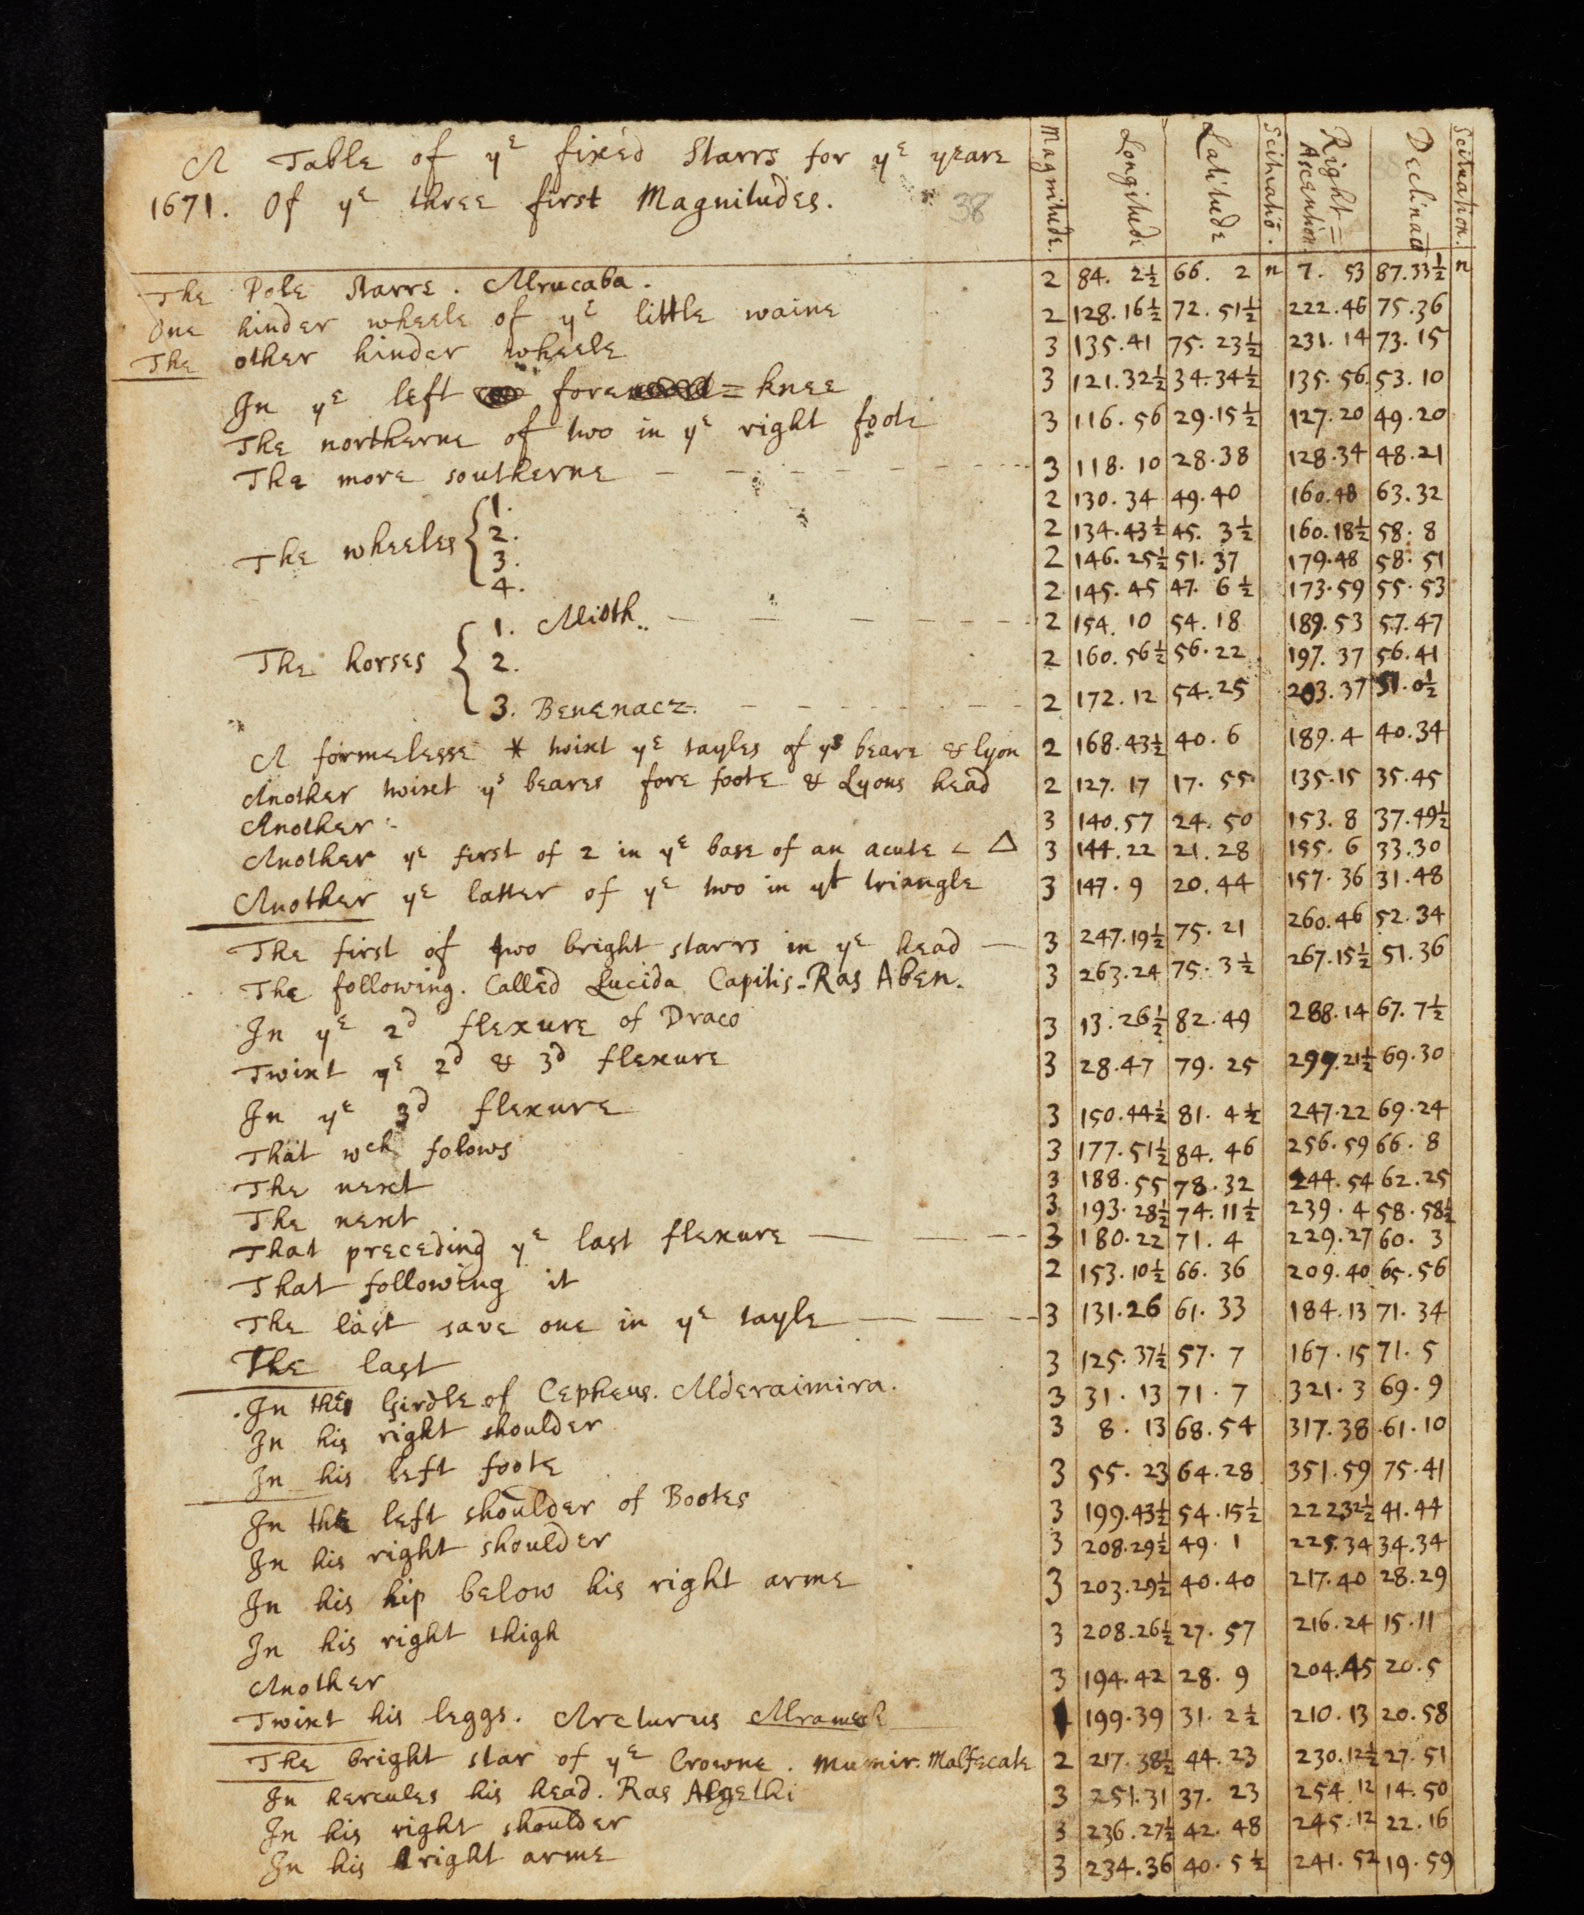 A Table of yᵉ fixed Starrs for yᵉ yeare
1671. Of yᵉ three first Magnitudes. 38
Magnitude. Longitude Latitude Scituatiō. Right= Ascention Declinatō Scituation.
The Pole Starre. Alrucaba. 2 84. 2½ 66. 2 n 7. 53 87.33½ n
One hinder wheele of yᵉ little waine 2 128.16½ 72.51½ 222.46 75.36
The other hinder wheele 3 135.41 75.23½ 231.14 73.15
In yᵉ left fore = knee 3 121.32½ 34.34½ 135.56 53.10
The northerne of two in yᵉ right foote 3 116.56 29.15½ 127.20 49.20
The more southerne 3 118.10 28.38 128.34 48.21
The wheeles { 1. 2 130.34 49.40 160.48 63.32
2. 2 134.43½ 45. 3½ 160.18½ 58. 8
3. 2 146.25½ 51.37 179.48 58.51
4. 2 145.45 47. 6½ 173.59 55.53
The horses { 1. Alioth. 2 154.10 54.18 189.53 57.47
2. 2 160.56½ 56.22 197.37 56.41
3. Benenacz. 2 172.12 54.25 203.37 51.0½
A formelesse * twixt yᵉ tayles of yᵉ beare & lyon 2 168.43½ 40.6 189.4 40.34
Another twixt yᵉ beares fore foote & Lyons head 2 127.17 17.55 135.15 35.45
Another 3 140.57 24.50 153.8 37.49½
Another yᵉ first of 2 in yᵉ base of an acute < △ 3 144.22 21.28 155.6 33.30
Another yᵉ latter of yᵉ two in yt triangle 3 147.9 20.44 157.36 31.48
The first of two bright starrs in yᵉ head 3 247.19½ 75.21 260.46 52.34
The following. Called Lucida Capitis. Ras Aben. 3 263.24 75.3½ 267.15½ 51.36
In yᵉ 2ᵈ flexure of Draco 3 13.26½ 82.49 288.14 67.7½
Twixt yᵉ 2ᵈ & 3ᵈ flexure 3 28.47 79.25 299.21½ 69.30
In yᵉ 3ᵈ flexure 3 150.44½ 81.4½ 247.22 69.24
That wᶜʰ folows 3 177.51½ 84.46 256.59 66.8
The next 3 188.55 78.32 244.54 62.25
The next 3 193.28½ 74.11½ 239.4 58.58½
That preceding yᵉ last flexure 3 180.22 71.4 229.27 60.3
That following it 2 153.10½ 66.36 209.40 65.56
The last save one in yᵉ tayle 3 131.26 61.33 184.13 71.34
The last 3 125.37½ 57.7 167.15 71.5
In the Girdle of Cepheus. Alderaimira. 3 31.13 71.7 321.3 69.9
In his right shoulder 3 8.13 68.54 317.38 61.10
In his left foote 3 55.23 64.28 351.59 75.41
In the left shoulder of Bootes 3 199.43½ 54.15½ 22232½ 41.44
In his right shoulder 3 208.29½ 49.1 225.34 34.34
In his hip below his right arme 3 203.29½ 40.40 217.40 28.29
In his right thigh 3 208.26½ 27.57 216.24 15.11
Another 3 194.42 28.9 204.45 20.5
Twixt his leggs. Arcturus Alramech 1 199.39 31.2½ 210.13 20.58
The bright star of yᵉ Crowne. Munir. Malfecate 2 217.38½ 44.23 230.12½ 27.51
In hercules his head. Ras Algethi 3 251.31 37.23 254.12 14.50
In his right shoulder 3 236.27½ 42.48 245.12 22.16
In his right arme 3 234.36 40.5½ 241.52 19.59